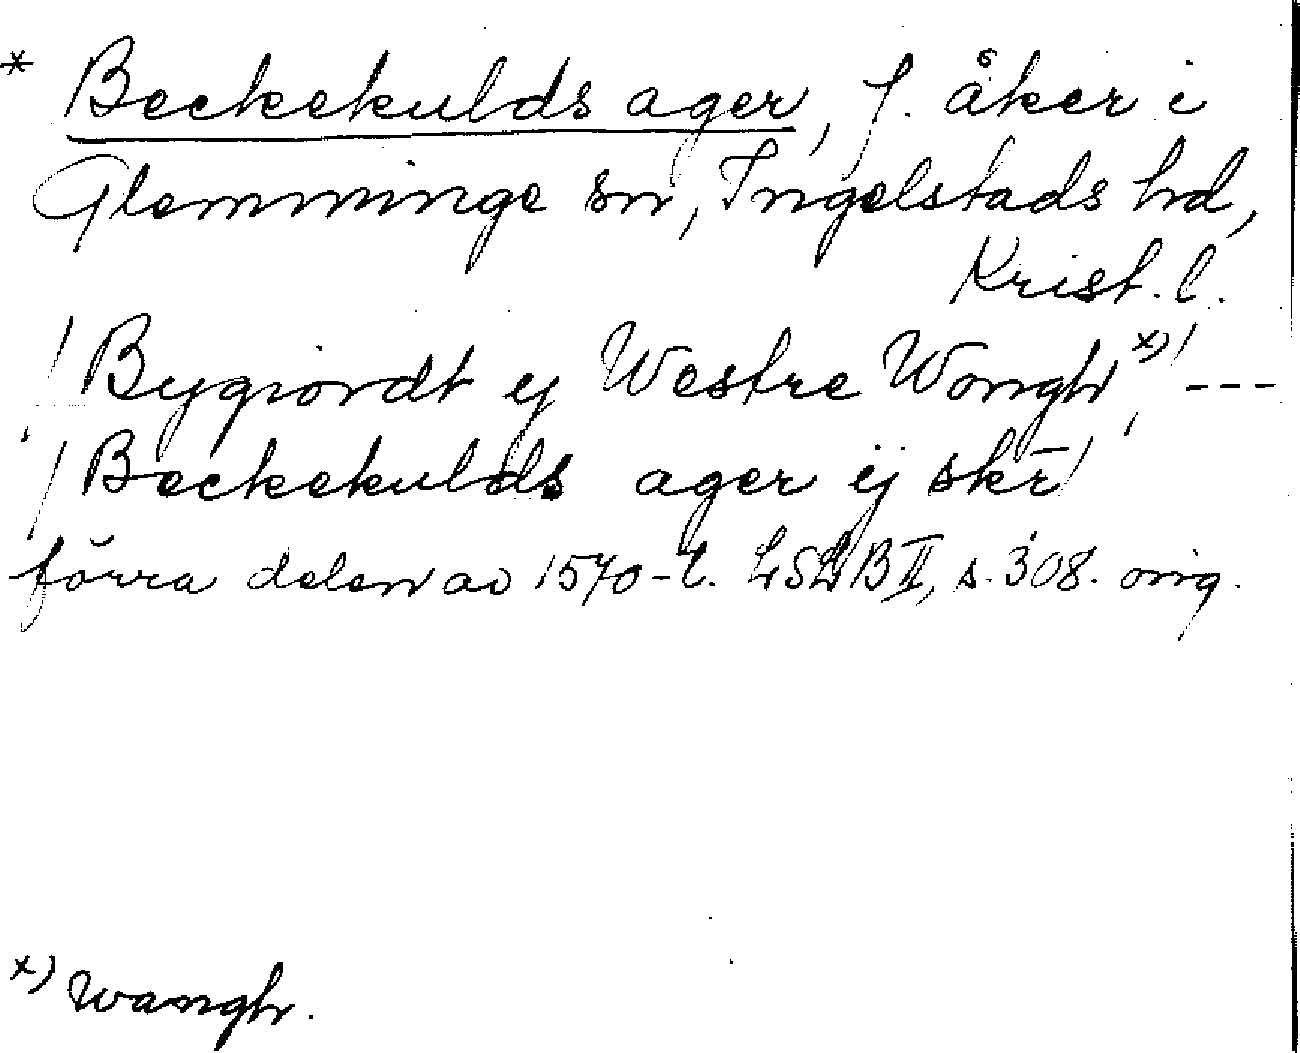 * Beckekulds ager, f. åker i
Glemminge sn, Ingelstads hd,
Krist. l.
/ Bygiordt ej Westre Wongh x) / ---
/ Beckekulds ager ej skr /
förra delen av 1570-t. LSLB II, s. 308. orig.
x) Wangh.